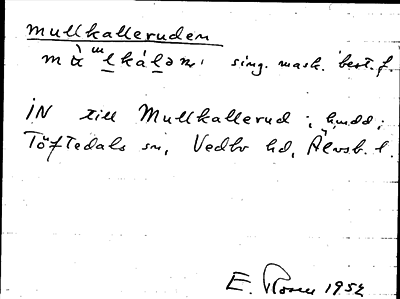 mullkalleruden
sing. mask. best. f.
IN till Mullkallerud, hmdd;
Töftedals sn, Vedbo hd, Älvsb. l.
E. Rosen 1952